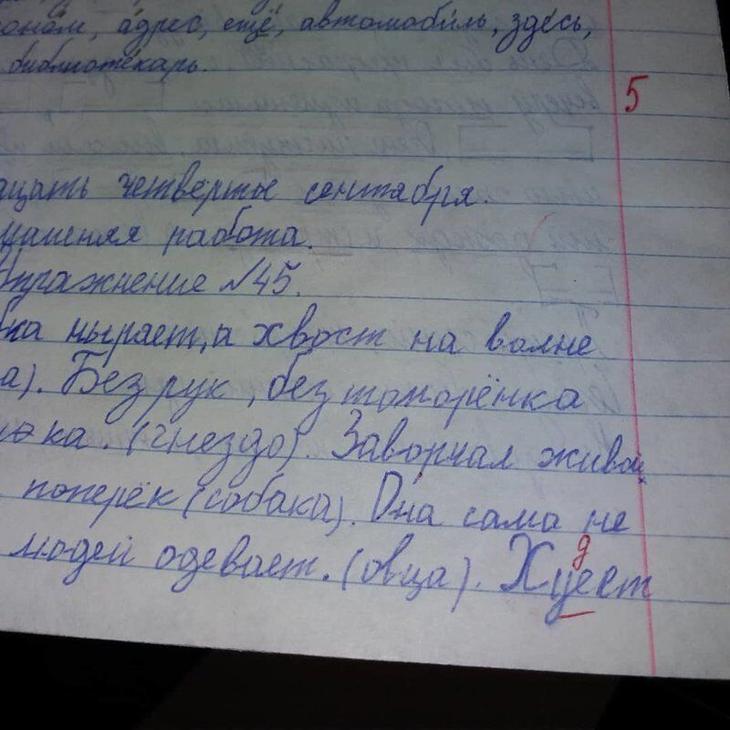 áдрес, ещё, автомоби́ль, здéсь,
библиотéкарь.
5
четвертое сентября.
работа.
Упражнение №45.
ныряет, а хвост на волне
а). Без рук, без топорёнка
ка. (гнездо). Заворчал живой
поперёк (собака). Она сама не
д
людей одевает. (овца). Хуест